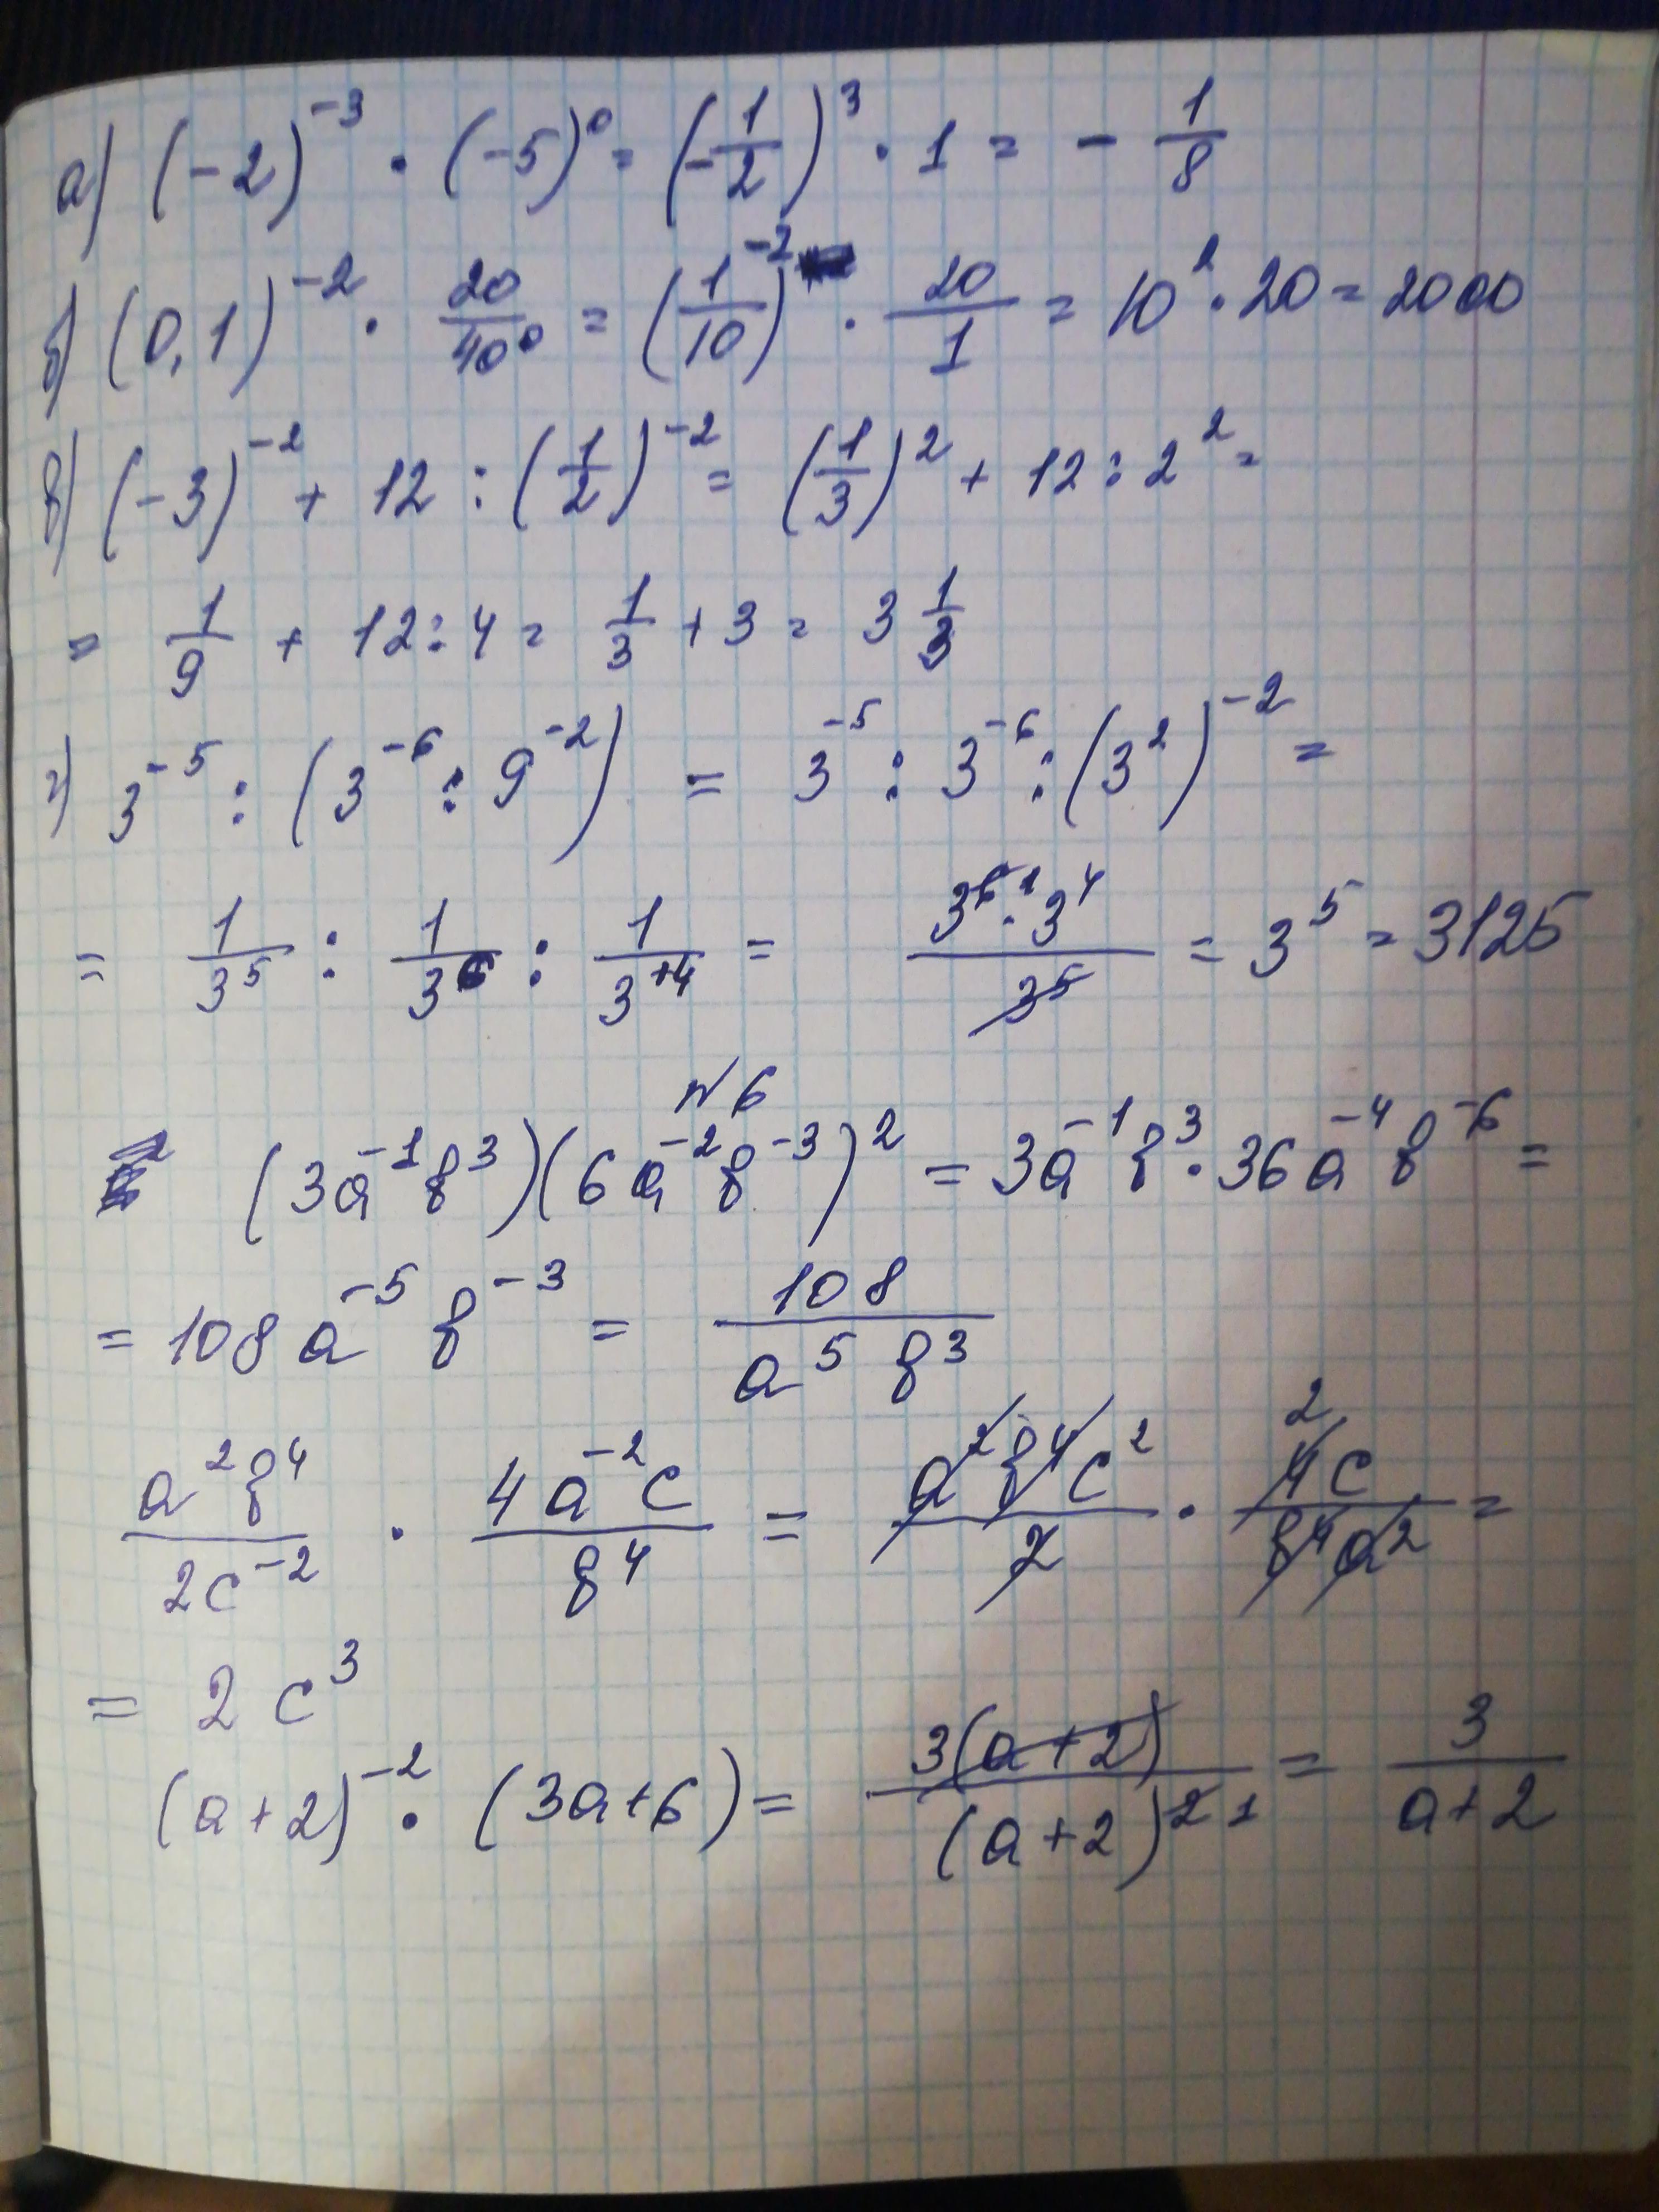 а) (-2)^{-3} · (-5)^0 = (-\frac{1}{2})^3 · 1 = -\frac{1}{8}
б) (0,1)^{-2} · \frac{20}{40^0} = (\frac{1}{10})^{-2} · \frac{20}{1} = 10^2 · 20 = 2000
в) (-3)^{-2} + 12 : (\frac{1}{2})^{-2} = (\frac{1}{3})^2 + 12 : 2^2 =
= \frac{1}{9} + 12 : 4 = \frac{1}{3} + 3 = 3\frac{1}{3}
г) 3^{-5} : (3^{-6} : 9^{-2}) = 3^{-5} : 3^{-6} : (3^2)^{-2} =
= \frac{1}{3^5} : \frac{1}{3^6} : \frac{1}{3^{+4}} = \frac{3^{6 1} · 3^4}{3^5} = 3^5 = 3125
№6
(3a^{-1}b^3)(6a^{-2}b^{-3})^2 = 3a^{-1}b^3 · 36a^{-4}b^{-6} =
= 108a^{-5}b^{-3} = \frac{108}{a^5b^3}
\frac{a^2b^4}{2c^{-2}} · \frac{4a^{-2}c}{b^4} = \frac{a^2b^4c^2}{2} · \frac{4c}{b^4a^2} =
= 2c^3
(a+2)^{-2} · (3a+6) = \frac{3(a+2)}{(a+2)^{2 1}} = \frac{3}{a+2}